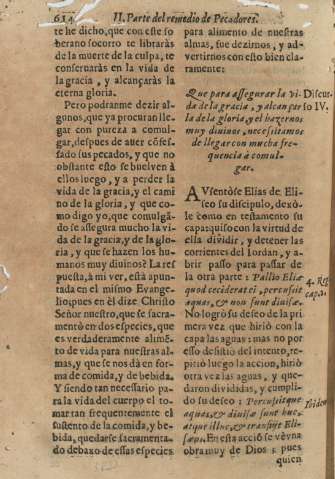 614 II. Parte del remedio de Pecadores.
te he dicho, que con este so
berano socorro te libraràs
de la muerte de la culpa, te
conseruaràs en la vida de
la gracia, y alcançaràs la
eterna gloria.
Pero podranme dezir al-
gunos, que ya procuran lle-
gar con pureza a comul-
gar, despues de auer cõfes-
sado sus pecados, y que no
obstante esto se buelven à
ellos luego, y a perder la
vida de la gracia, y el cami
no de la gloria, y que co-
mo digo yo, que comulgã-
do se assegura mucho la vi-
da de la gracia, y de la glo-
ria, y que se hazen los hu-
manos muy diuinos? La ref
puesta, à mi ver, está apun-
tada en el mismo Euange-
lio, pues en èl dize Christo
Señor nuestro, que se sacra-
mentò en dos especies, que
es verdaderamente alimẽ-
to de vida para nuestras al-
mas, y que se nos dà en for-
ma de comida, y de bebida.
Y siendo tan necessario pa-
ra la vida del cuerpo el to-
mar tan frequentemente el
sustento de la comida, y be-
bida, quedarse sacramenta-
do debaxo de essas especies
para alimento de nuestras
almas, fue dezirnos, y ad-
vertirnos con esto bien cla-
ramente:
Que para assegurar la vi-
da de la gracia, y alcançar
la de la gloria, y el hazernos
muy diuinos, necessitamos
de llegar con mucha fre-
quencia à comul-
gar.
Discur
so IV.
AVsentòse Elias de Eli-
seo su discipulo, dexò-
le como en testamento su
capa: quiso con la virtud de
ella dividir, y detener las
corrientes del Iordan, y a-
brir passo para passar de
la otra parte: Pallio Eliæ
quod ceciderat ei, percussit
aquas, & non sunt divisæ.
4. Reg.
cap. 2.
No logrò su deseo de la pri
mera vez que hiriò con la
capa las aguas: mas no por
esso desistio del intento, re-
pitiò luego la accion, hiriò
otra vez las aguas, y que-
daron divididas, y cumpli-
do su deseo: Percussitque
aquas, & divisæ sunt huc,
atque illuc, & transijt Eli-
sæus. En esta acciõ se vè vna
Ibidem
obra muy de Dios; pues
quien